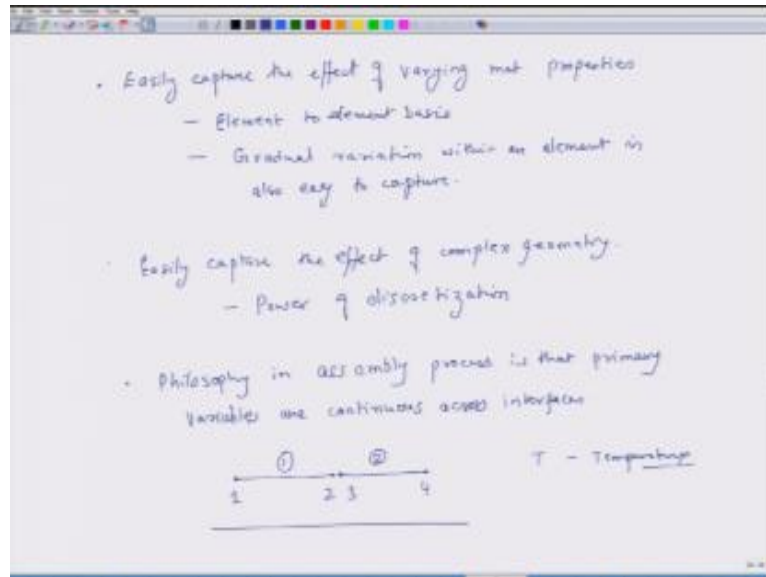 • Easily capture the effect of varying mat properties
— Element to element basis
— Gradual variation within an element is
also easy to capture.
Easily capture the effect of complex geometry.
— Power of discretization
• Philosophy in assembly process is that primary
variables are continuous across interfaces
① ② T - Temperature
1 2 3 4